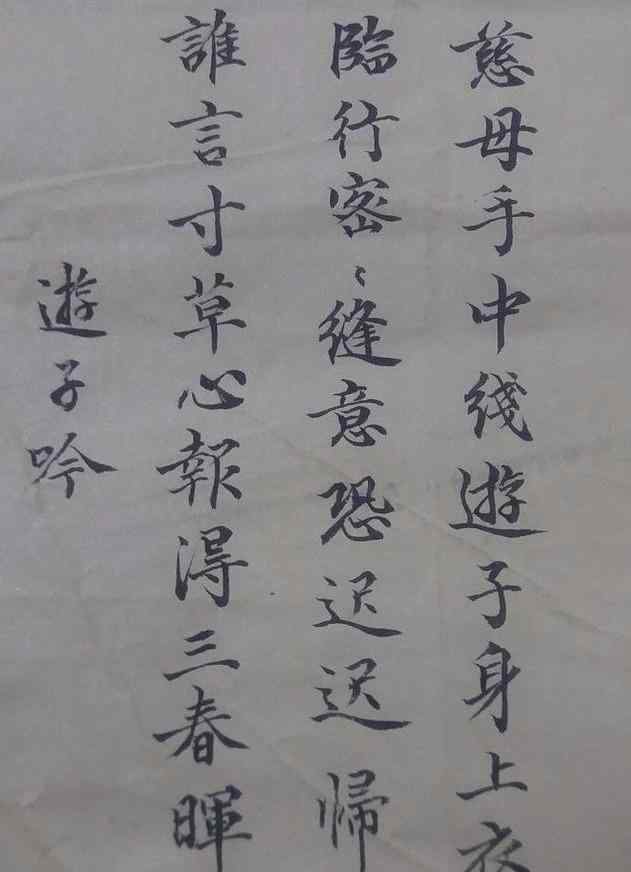 慈母手中线遊子身上衣
臨行密〻縫意恐迟迟帰
誰言寸草心報得三春暉
遊子吟